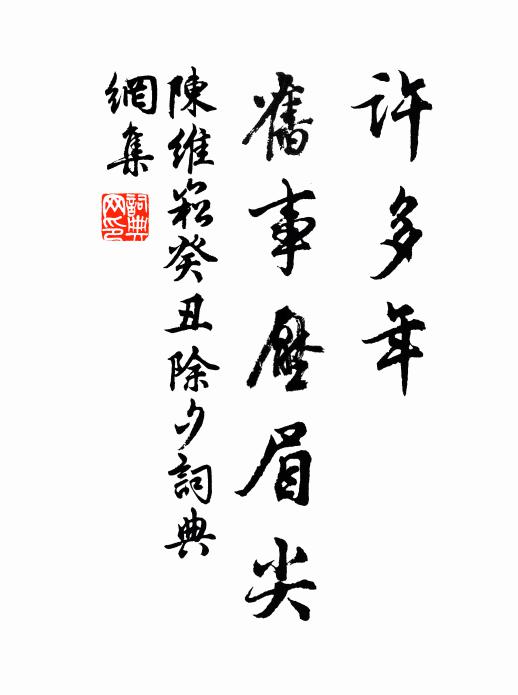 許多年
舊事壓眉尖
陳維崧癸丑除夕詞典
網集
詞典
网印